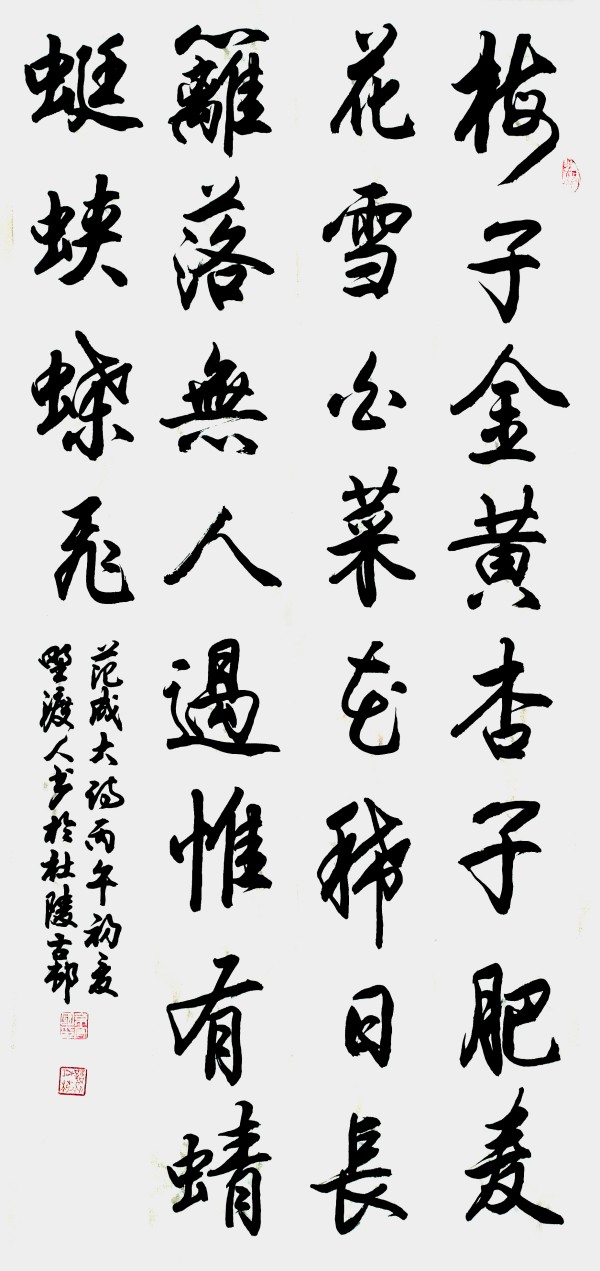 梅子金黄杏子肥麦
花雪白菜花稀日長
籬落無人過惟有蜻
蜓蛱蝶飛
范成大詩丙午初夏
墅渡人書於杜陵古邨